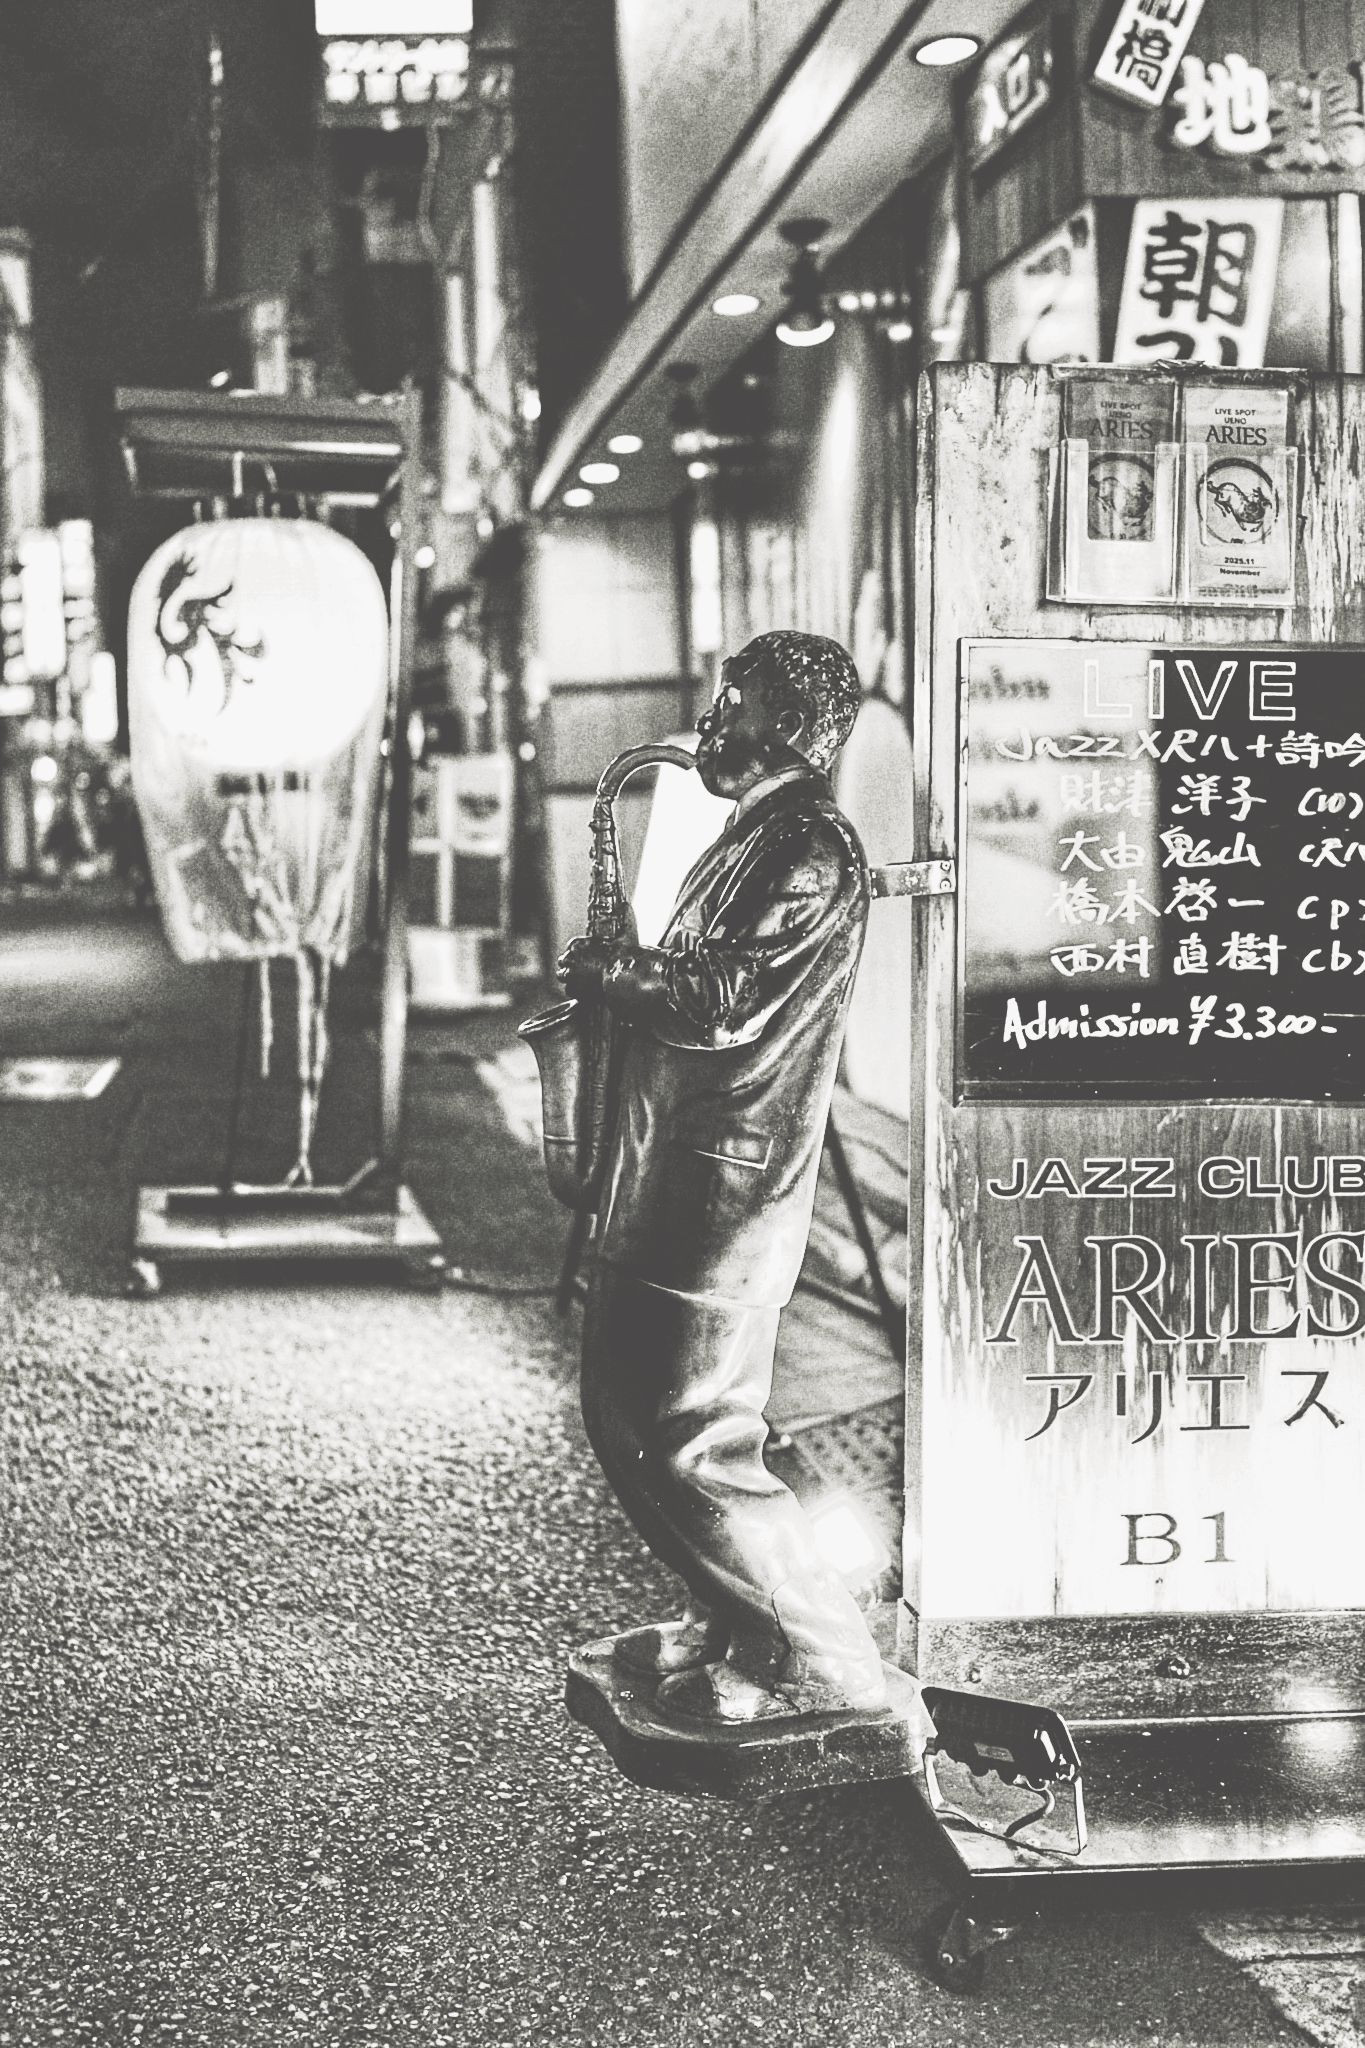 橋
地鶏
朝引
LIVE SPOT
UENO
ARIES
LIVE SPOT
UENO
ARIES
2025.11
November
LIVE
Jazz X尺八+詩吟
財津 洋子 (vo)
大由 鬼山 (尺八
橋本 啓一 (p)
西村 直樹 (b)
Admission ¥3.300-
JAZZ CLUB
ARIES
アリエス
B1